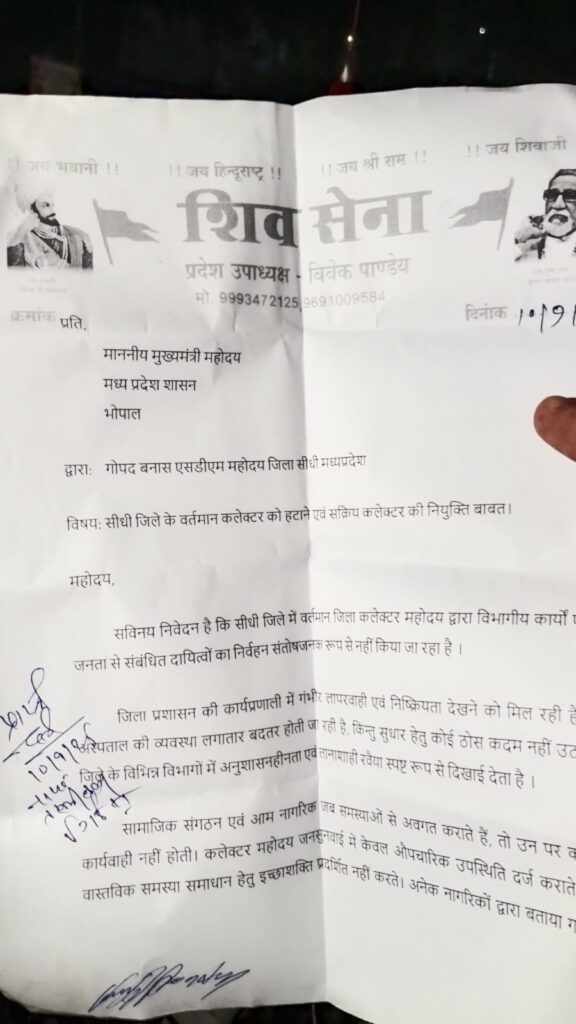 !! जय भवानी !! !! जय हिन्दूराष्ट्र !! !! जय श्री राम !! !! जय शिवाजी
शिव सेना
प्रदेश उपाध्यक्ष - विवेक पाण्डेय
मो. 9993472125,9691009584
क्रमांक दिनांक 10/9/
प्रति,
माननीय मुख्यमंत्री महोदय
मध्य प्रदेश शासन
भोपाल
द्वारा: गोपद बनास एसडीएम महोदय जिला सीधी मध्यप्रदेश
विषय: सीधी जिले के वर्तमान कलेक्टर को हटाने एवं सक्रिय कलेक्टर की नियुक्ति बाबत।
महोदय,
सविनय निवेदन है कि सीधी जिले में वर्तमान जिला कलेक्टर महोदय द्वारा विभागीय कार्यों
जनता से संबंधित दायित्वों का निर्वहन संतोषजनक रूप से नहीं किया जा रहा है ।
जिला प्रशासन की कार्यप्रणाली में गंभीर लापरवाही एवं निष्क्रियता देखने को मिल रही है
अस्पताल की व्यवस्था लगातार बदतर होती जा रही है, किन्तु सुधार हेतु कोई ठोस कदम नहीं
जिले के विभिन्न विभागों में अनुशासनहीनता एवं तानाशाही रवैया स्पष्ट रूप से दिखाई देता है ।
सामाजिक संगठन एवं आम नागरिक जब समस्याओं से अवगत कराते हैं, तो उन पर
कार्यवाही नहीं होती। कलेक्टर महोदय जनसुनवाई में केवल औपचारिक उपस्थिति दर्ज कराते
वास्तविक समस्या समाधान हेतु इच्छाशक्ति प्रदर्शित नहीं करते। अनेक नागरिकों द्वारा बताया